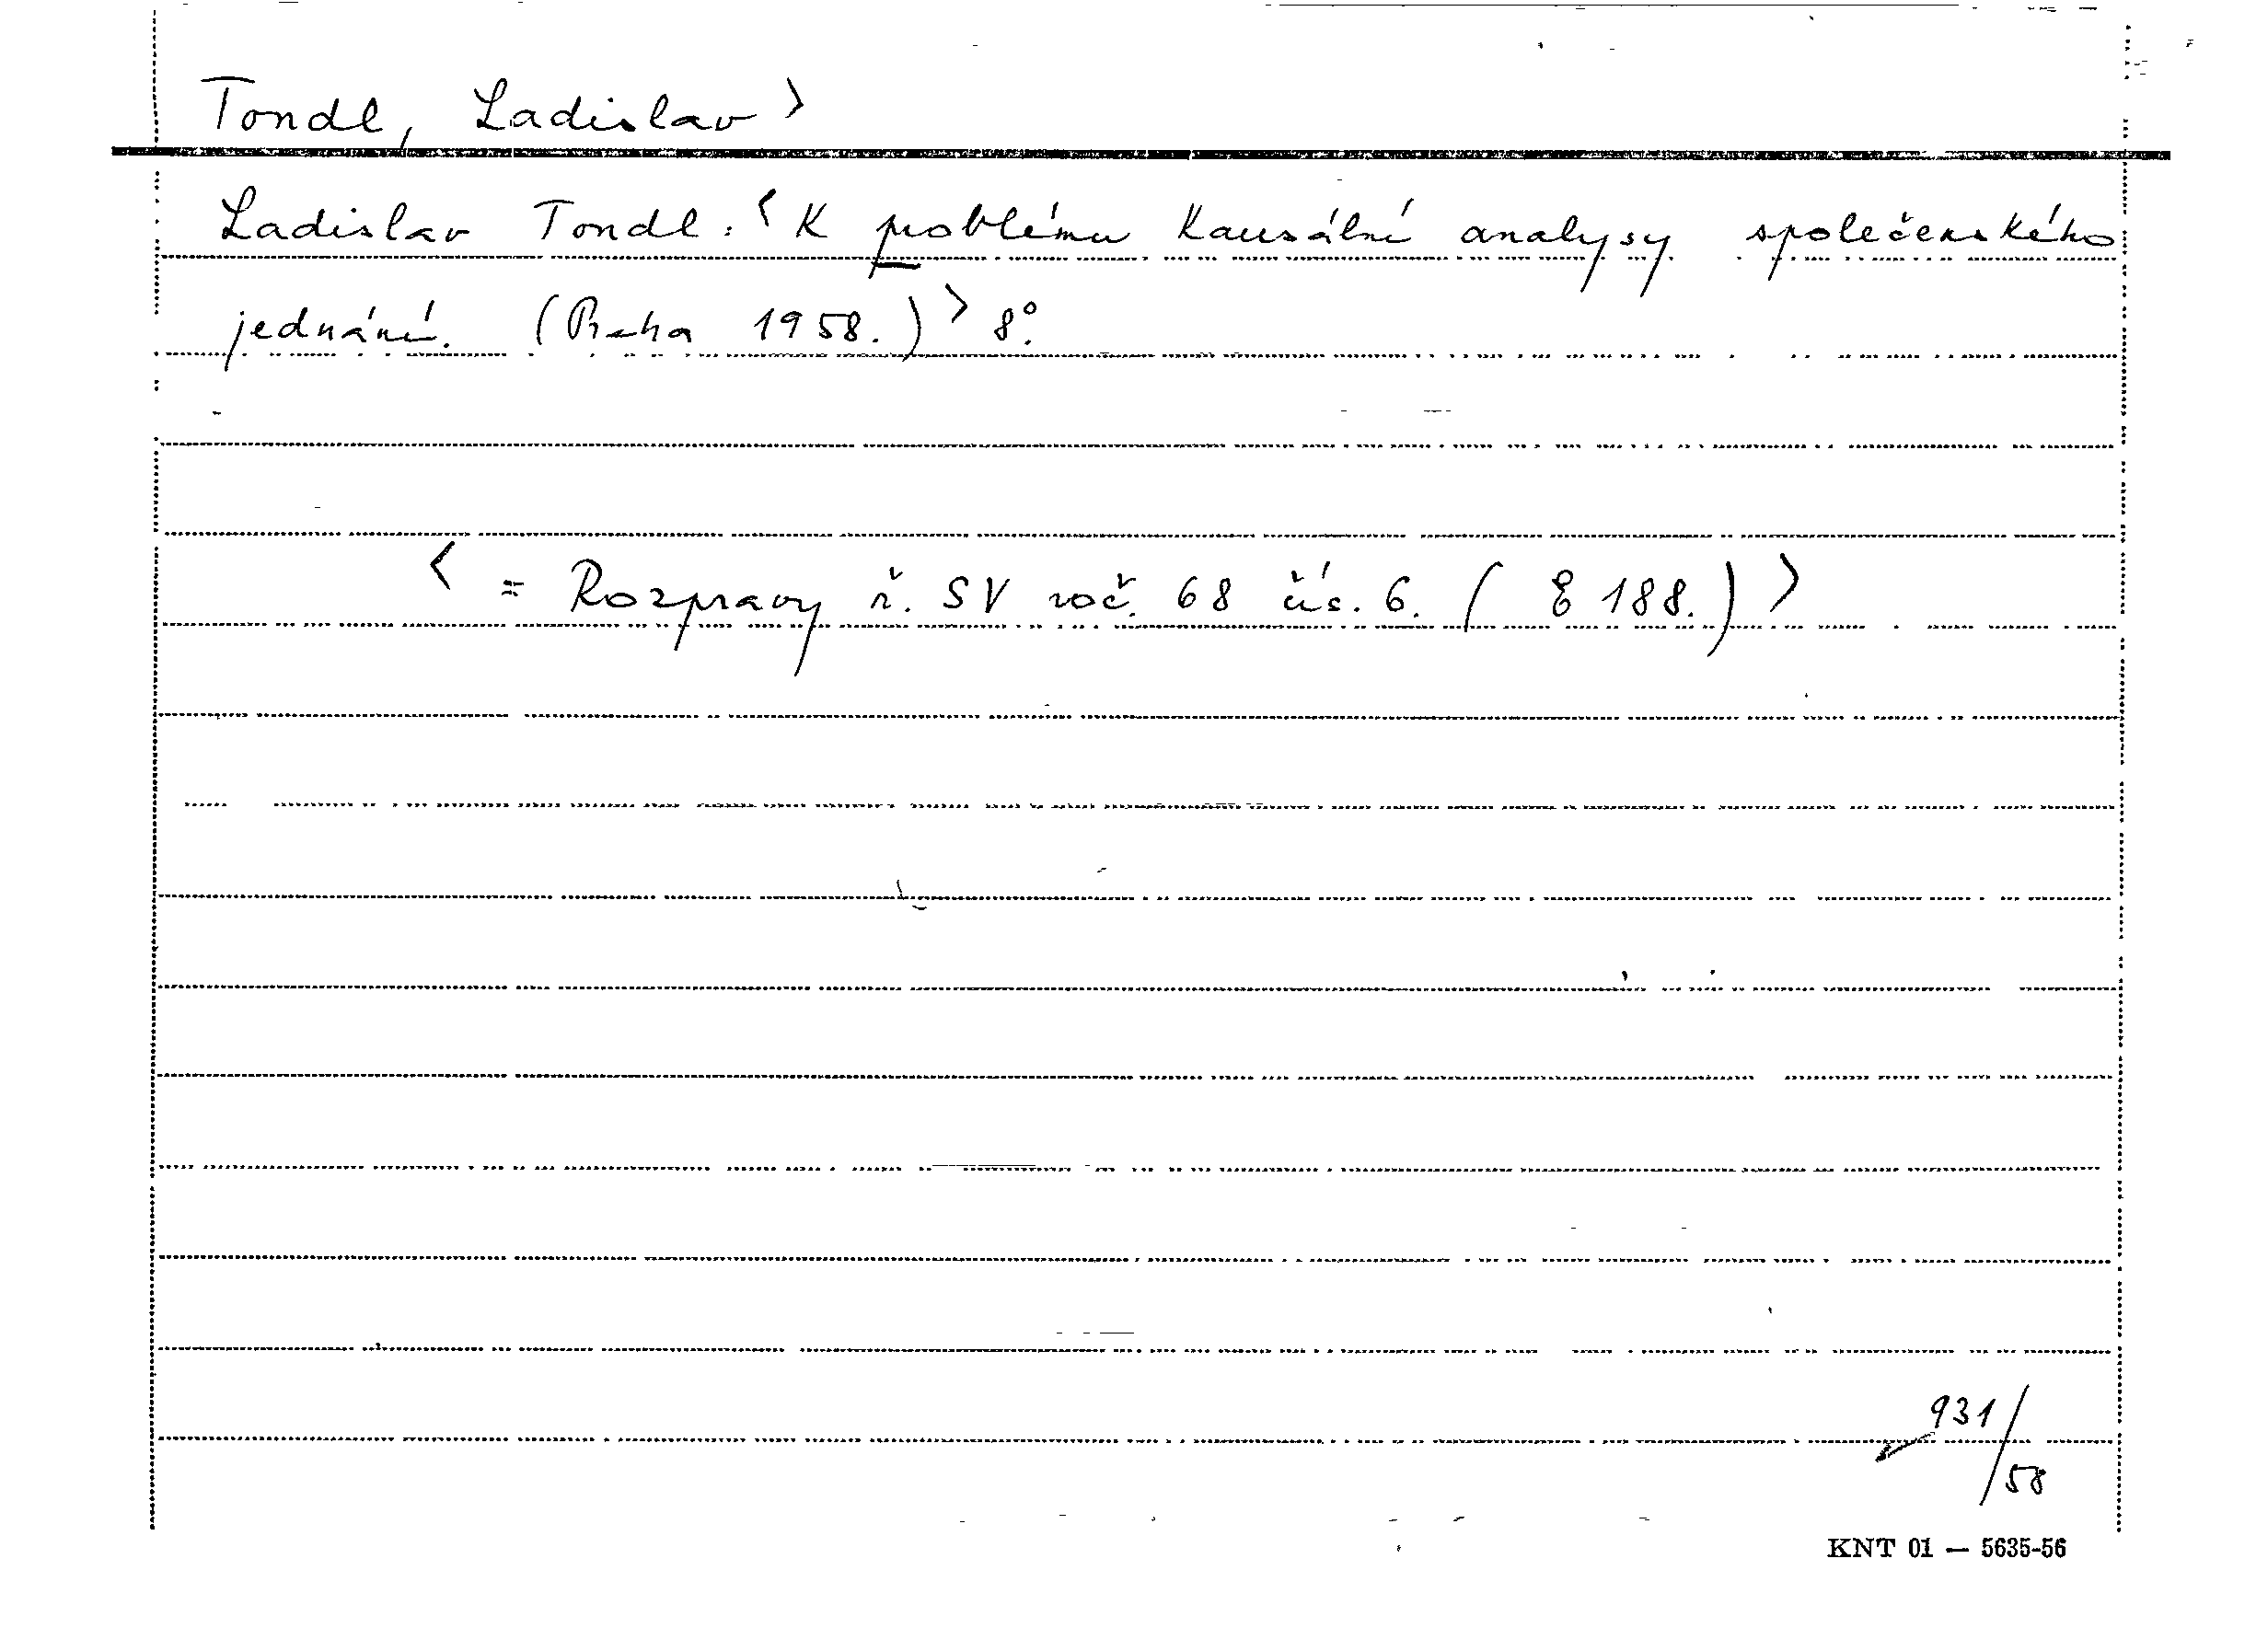 Tondl, Ladislav >
Ladislav Tondl: < K problému kausální analysy společenského
jednání. (Praha 1958.) > 8°.
< = Rozpravy ř. SV roč. 68 čís. 6. ( E 188.) >
931/
/58
KNT 01 — 5635-56